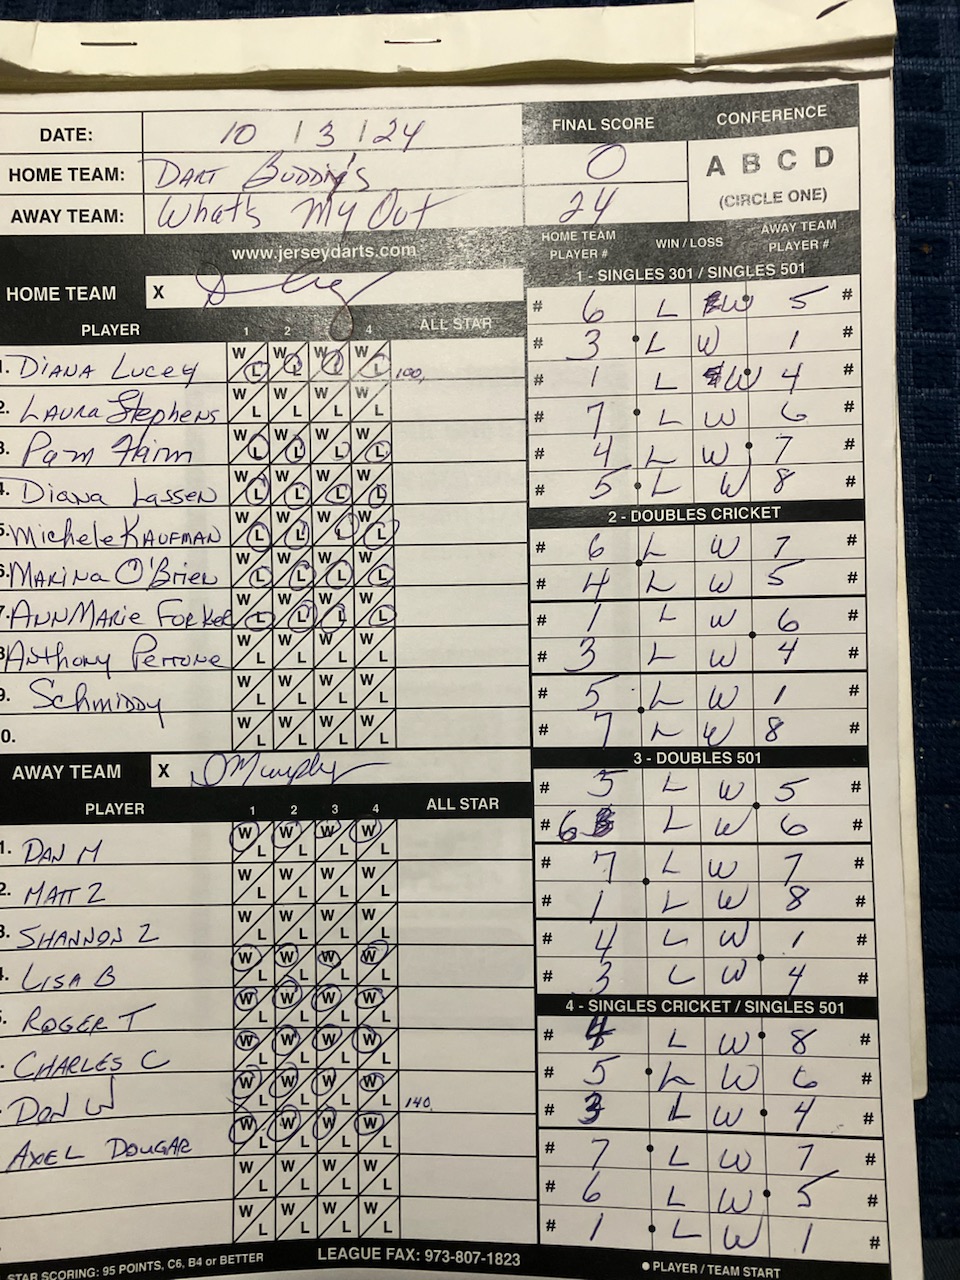 DATE: 10 / 3 / 24
HOME TEAM: DART BUDDIES
AWAY TEAM: What's My Out
FINAL SCORE
0
24
CONFERENCE
A B C D
(CIRCLE ONE)
www.jerseydarts.com
HOME TEAM X
PLAYER 1 2 3 4 ALL STAR
1. DIANA LUCEY W L W L W L W L 100,
2. LAURA Stephens W L W L W L W L
3. Pam W L W L W L W L
4. Diana LASSEN W L W L W L W L
5. Michele KAUFMAN W L W L W L W L
6. MARINA O'BRIEN W L W L W L W L
7. ANNMARIE W L W L W L W L
8. Anthony Perrone W L W L W L W L
9. Schmiddy W L W L W L W L
0. W L W L W L W L
AWAY TEAM X DMurphy
PLAYER 1 2 3 4 ALL STAR
1. DAN M W L W L W L W L
2. MATT Z W L W L W L W L
3. SHANNON Z W L W L W L W L
4. LISA B W L W L W L W L
5. ROGER T W L W L W L W L
CHARLES C W L W L W L W L
DON W W L W L W L W L 140
AXEL DOUGAR W L W L W L W L
W L W L W L W L
W L W L W L W L
STAR SCORING: 95 POINTS, C6, B4 or BETTER
LEAGUE FAX: 973-807-1823
HOME TEAM PLAYER # WIN / LOSS AWAY TEAM PLAYER #
1 - SINGLES 301 / SINGLES 501
# 6 L W 5 #
# 3 L W 1 #
# 1 L W 4 #
# 7 L W 6 #
# 4 L W 7 #
# 5 L W 8 #
2 - DOUBLES CRICKET
# 6 L W 7 #
# 4 L W 5 #
# 1 L W 6 #
# 3 L W 4 #
# 5 L W 1 #
# 7 L W 8 #
3 - DOUBLES 501
# 5 L W 5 #
# 6 L W 6 #
# 7 L W 7 #
# 1 L W 8 #
# 4 L W 1 #
# 3 L W 4 #
4 - SINGLES CRICKET / SINGLES 501
# 4 L W 8 #
# 5 L W 6 #
# 3 L W 4 #
# 7 L W 7 #
# 6 L W 5 #
# 1 L W 1 #
PLAYER / TEAM START